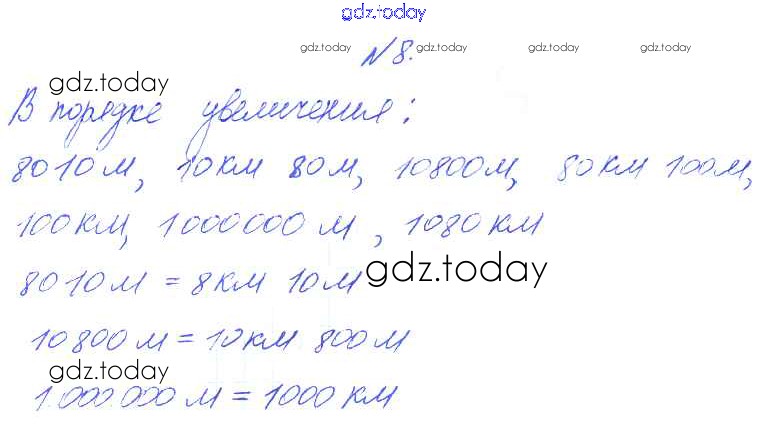 gdz.today
№8.
gdz.today gdz.today gdz.today gdz.today
gdz.today
В порядке увеличения:
8010 м, 10 км 80 м, 10800 м, 80 км 100 м,
100 км, 1000000 м, 1080 км
8010 м = 8 км 10 м
gdz.today
10800 м = 10 км 800 м
gdz.today
1.000.000 м = 1000 км